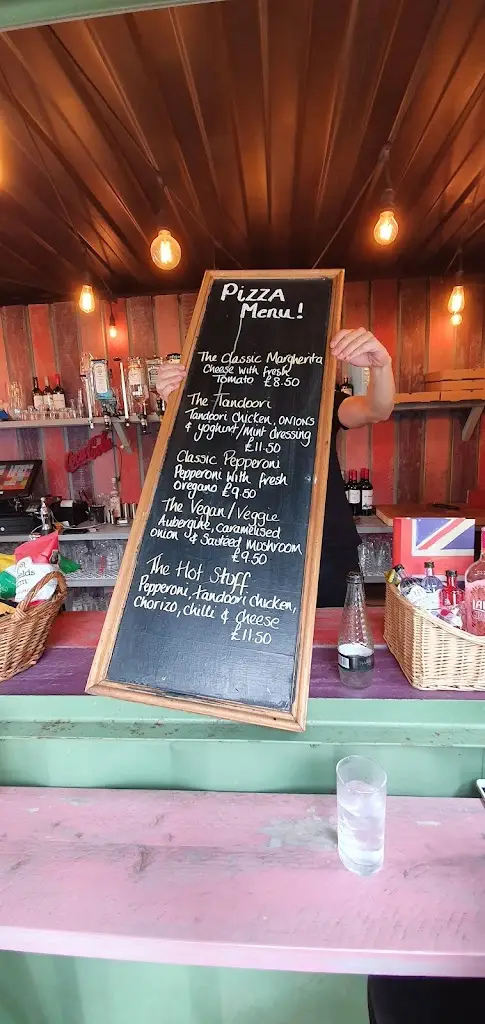 PIZZA
Menu!
The Classic Margherita
Cheese with fresh
Tomato £8.50
The Tandoori
Tandoori Chicken, ONIONS
& yoghurt/Mint dressing
£11.50
Classic Pepperoni
Pepperoni with fresh
oregano £9.50
The Vegan/Veggie
Aubergine, caramelised
onion & Sauteed Mushroom
£9.50
The Hot Stuff
Pepperoni, tandoori chicken,
chorizo, chilli & cheese
£11.50
Coca-Cola